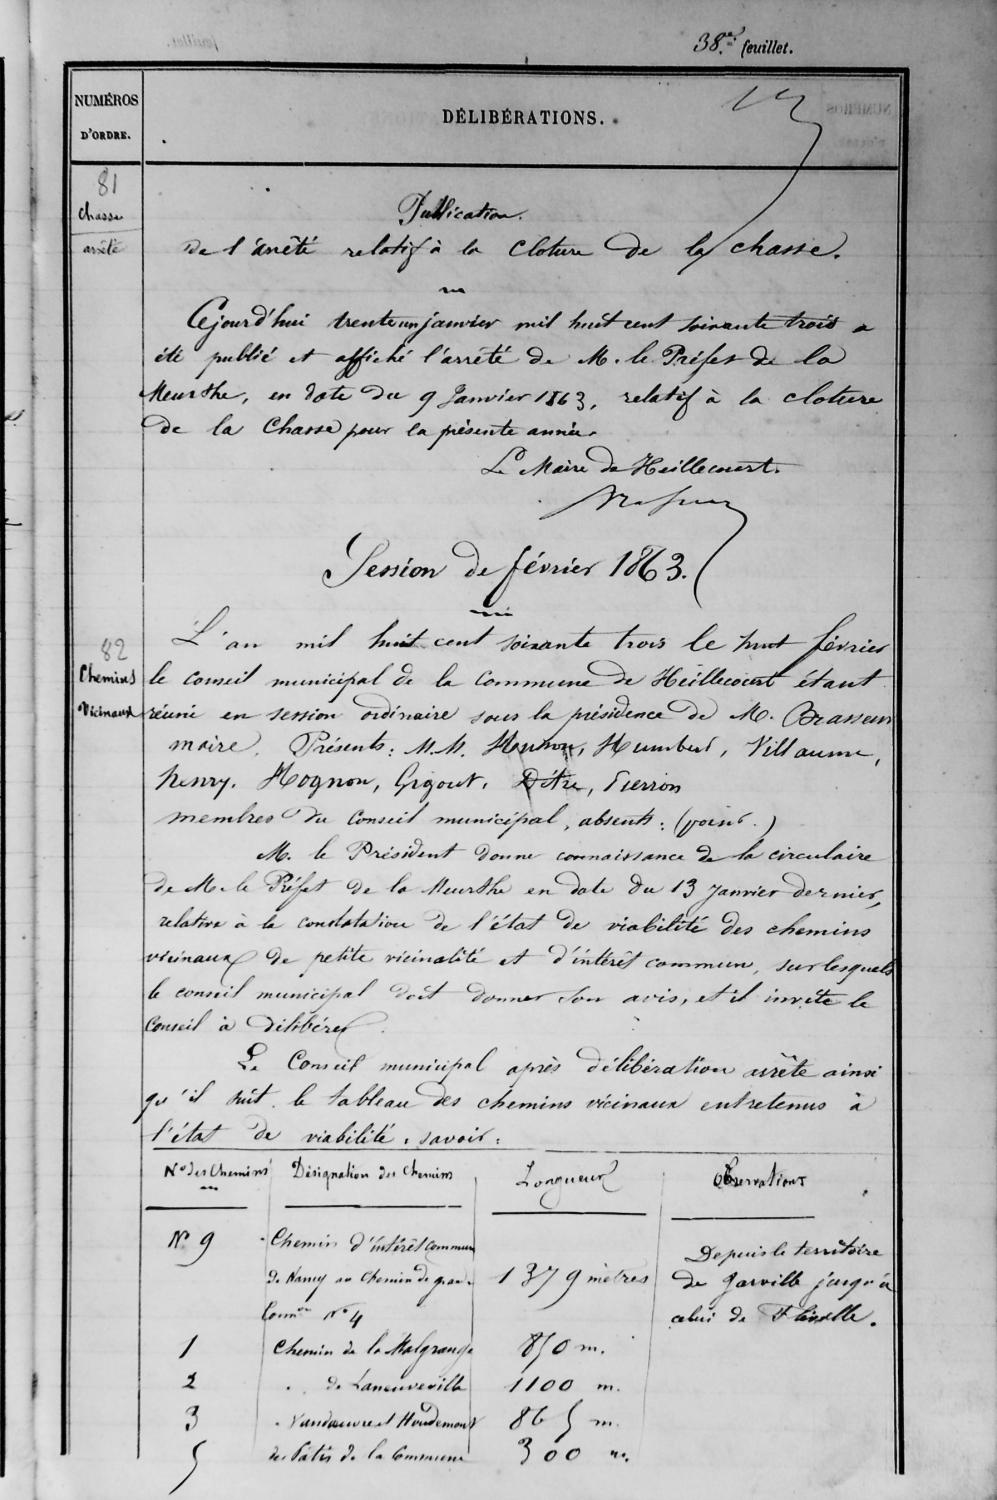 38.e feuillet.
NUMÉROS
D'ORDRE.
DÉLIBÉRATIONS.
81
Chasse
arrêté
Publication.
de l'arrêté relatif à la cloture de la chasse.
Cejourd'hui trente un janvier mil huit cent soixante trois a
été publié et affiché l'arrêté de M. le Préfet de la
Meurthe, en date du 9 Janvier 1863, relatif à la cloture
de la Chasse pour la présente année.
Le Maire de Heillecourt.
Session de février 1863.
82
Chemins
Vicinaux
L'an mil huit cent soixante trois le huit février
le conseil municipal de la Commune de Heillecourt étant
réuni en session ordinaire sous la présidence de M. Brasseur
maire. Présents: M.M. Humbert, Villaume,
henry, Hognon, Grigout, Ditre, Pierron
membres du Conseil municipal, absents: (point.)
M. le Président donne connaissance de la circulaire
de M. le Préfet de la Meurthe en date du 13 Janvier dernier,
relative à la constatation de l'état de viabilité des chemins
vicinaux de petite vicinalité et d'intérêt commun, sur lesquels
le conseil municipal doit donner son avis, et il invite le
Conseil à délibérer.
Le Conseil municipal après délibération arrête ainsi
qu'il suit le tableau des chemins vicinaux entretenus à
l'état de viabilité, savoir:
Nos des Chemins Désignation des Chemins Longueur Observations
N° 9 Chemin d'intérêt commun
de Nancy au Chemin de gran. 1379 mètres Depuis le territoire
Comon N° 4 de Jarville jusqu'à
celui de Fléville.
1 Chemin de la Malgrange 850 m.
2 " de Laneuveville 1100 m.
3 " Vandoeuvre et Houdemont 865 m.
5 des Pâtis de la Commune 300 m.